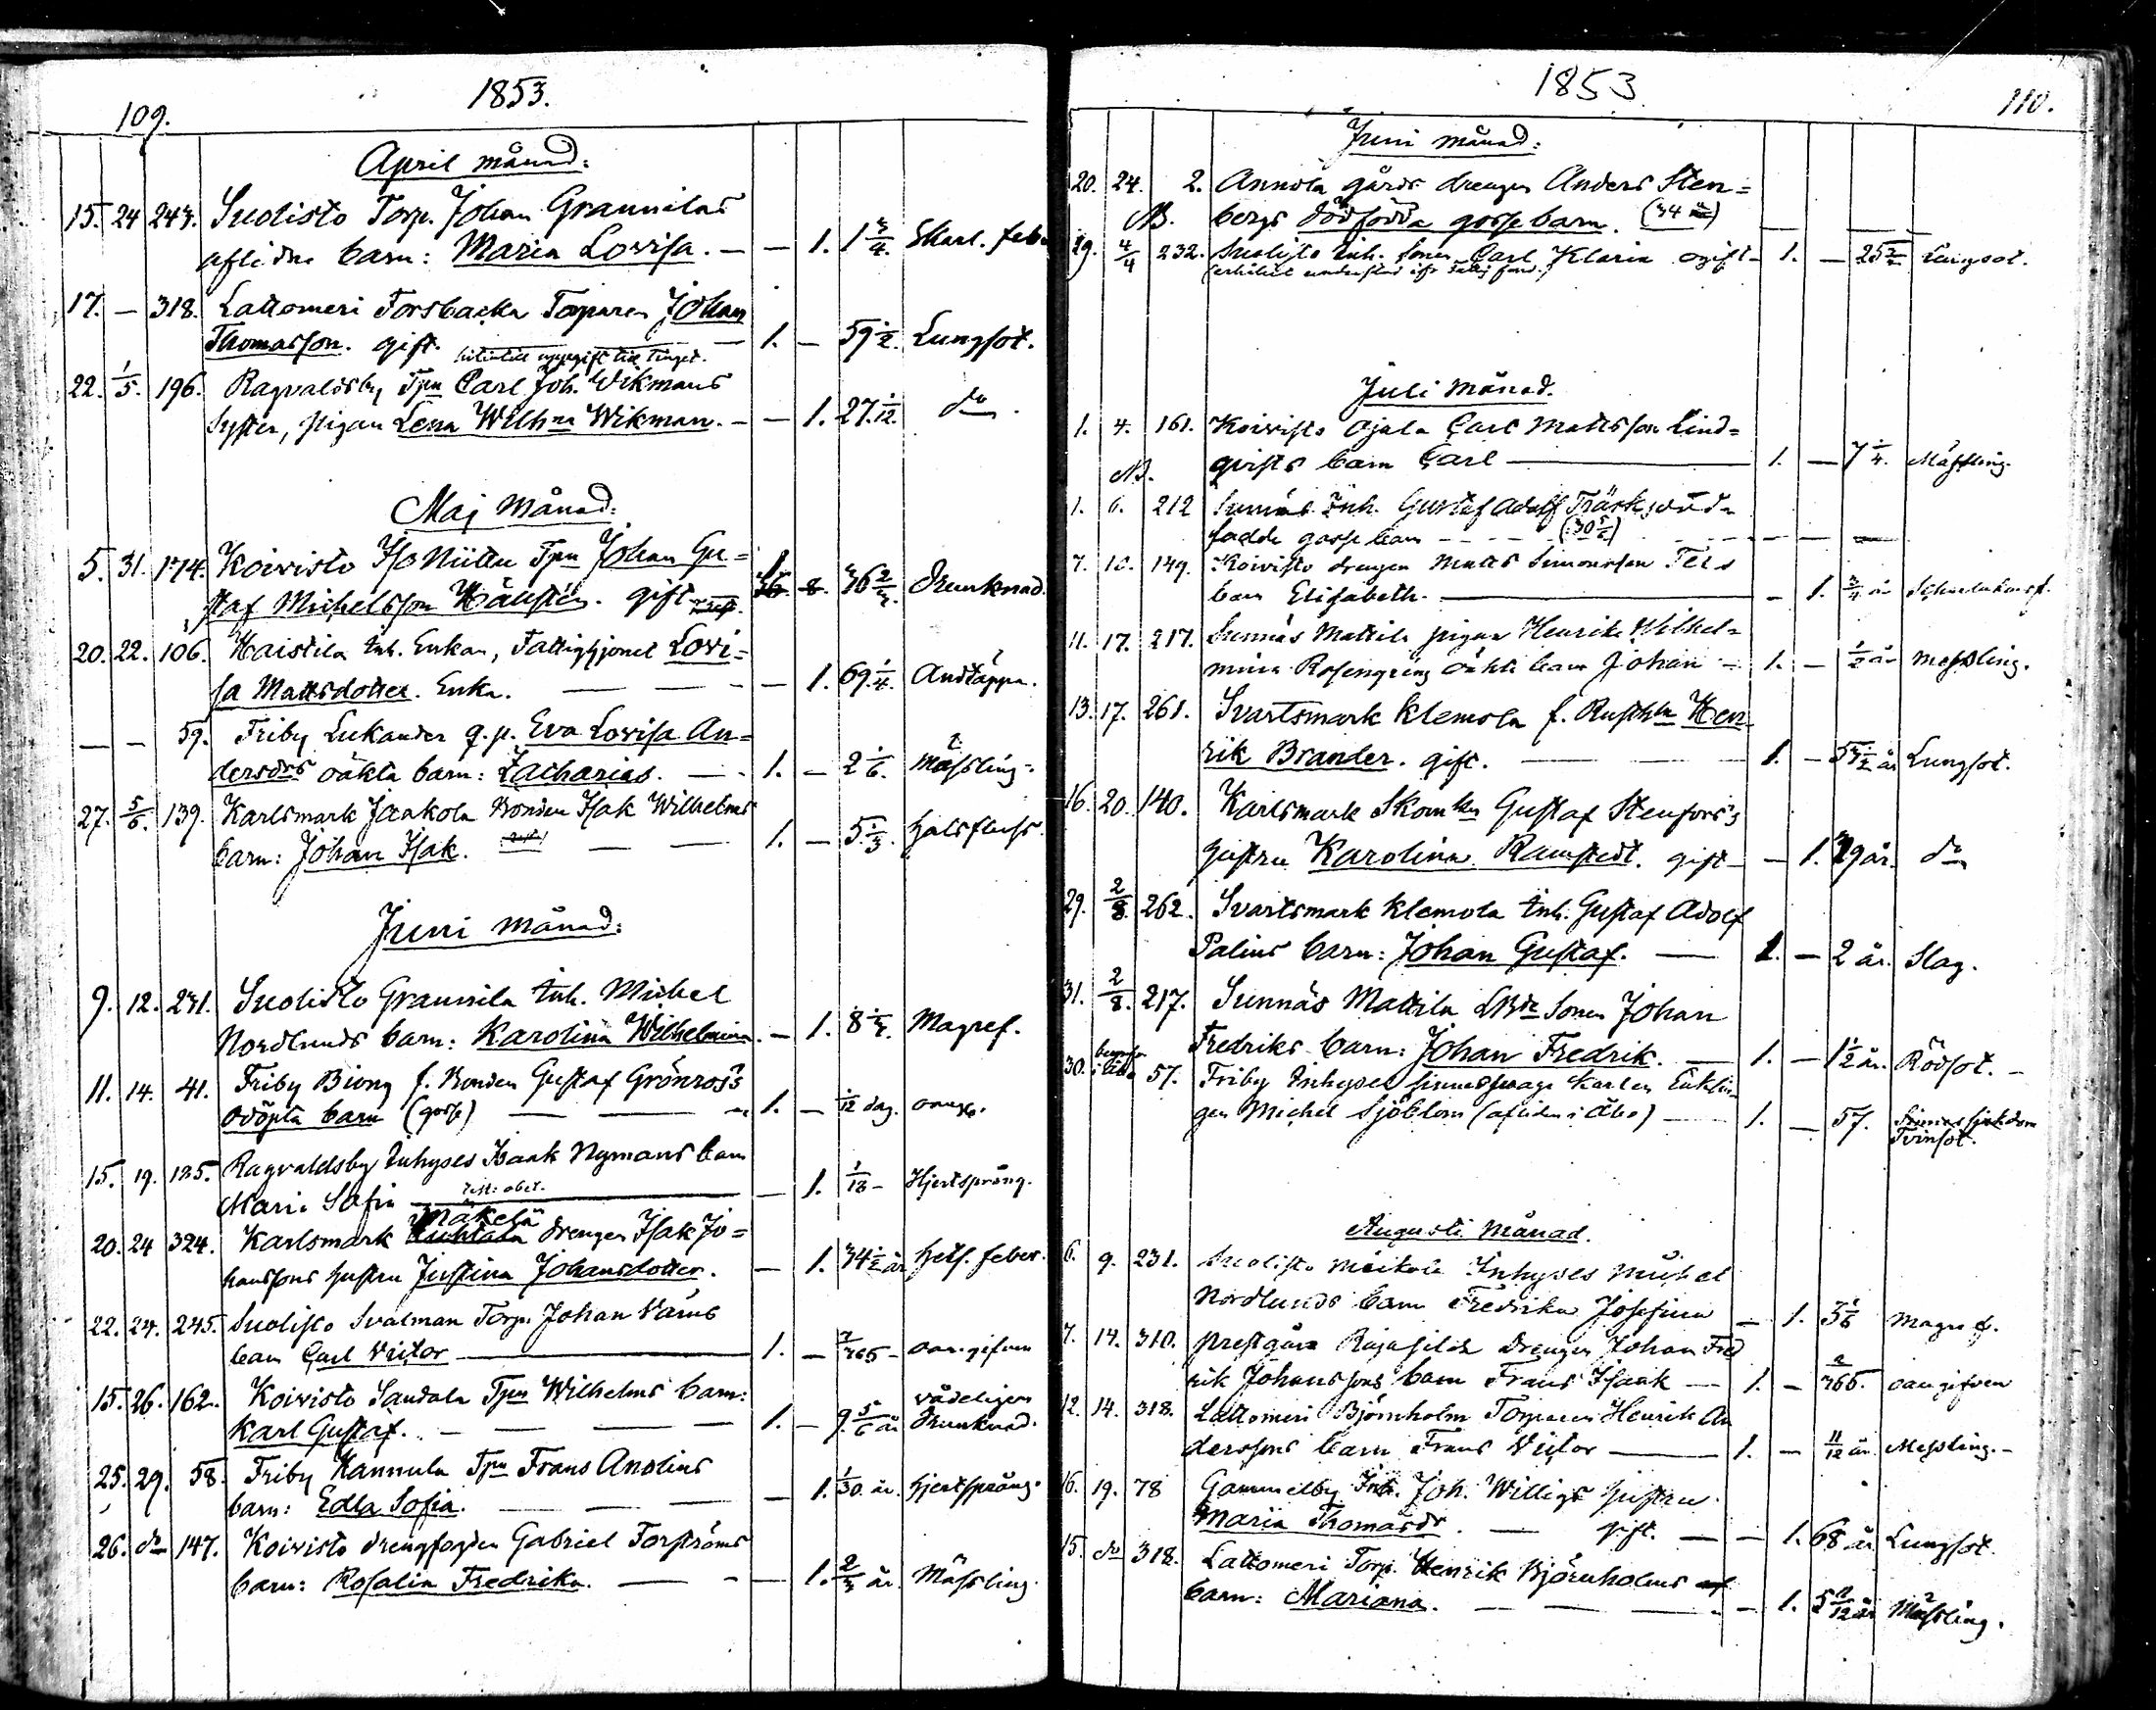 109.
1853.
April månad:
15. 24 243. Suolisto Torp. Johan Grannilas
aflidne barn: Maria Lovisa. — — 1. 1 3/4. Skarl. feber
17. — 318. Lattomeri Forsbacka Torparen Johan
Thomasson. gift. — 1. — 59 1/2. Lungsot.
uppgift till Tinget.
22. 1/5. 196. Ragvaldsby Tpn Carl Joh. Wikmans
Syster, pigan Lena Wilhna Wikman. — — 1. 27 1/12. do
Maj Månad:
5. 31. 174. Koivisto Iso Niittu Tpn Johan Gu=
staf Michelsson Hällsten. gift 1. 36 2/3. Drunknad.
20. 22. 106. Haistila Inh. Enkan, Fattighjonet Lovi=
sa Mattsdotter. Enka. — — — 1. 69 1/4. Andtäppa.
— — 59. Friby Lukander q. p. Eva Lovisa An=
dersdrs oäkta barn: Zacharias. — 1. — 2 1/6. Mässling.
27. 5/6. 139. Karlsmark Jaakola Bonden Isak Wilhelms
barn: Johan Isak. — — 1. — 5 1/3. Halsfluss.
Juni månad:
9. 12. 231. Suolisto Grannila Inh. Michel
Nordlunds barn: Karolina Wilhelmina. — 1. 8 1/3. Magref.
11. 14. 41. Friby Biong f. Bonden Gustaf Grönros's
odöpta barn (gosse) — — 1. — 1/12 dag. oangif.
15. 19. 125. Ragvaldsby Inhyses Isaak Nymans barn
Maria Sofia — — 1. 1/18 — Hjertsprång.
Mäkelä
20. 24 324. Karlsmark drengen Isak Jo=
hanssons hustru Justina Johansdotter. — 1. 34 1/2 år Hets. feber.
22. 24. 245. Suolisto Svalman Torp. Johan Wäms
barn Carl Victor — 1. — 7/365 — oan. gifven
15. 26. 162. Koivisto Sandala Tpn Wilhelms barn:
Karl Gustaf. — — — 1. — 9 5/6 år vådeligen
Drunknad.
25. 29. 58. Friby Hannula Tpn Frans Anolins
barn: Edla Sofia. — — — — 1. 1/30. år. Hjertsprång.
26. do 147. Koivisto drengfogden Gabriel Forströms
barn: Rosalia Fredrika. — — — 1. 2/3 år. Mässling.
1853
110.
Juni månad:
20. 24. 2. Annola gårds drengen Anders Sten=
NB. bergs dödfödda gossebarn. (34 år)
29. 4/4 232. Suolisto Inh. sonen Carl Klarin ogift — 1. — 25 Lungsot.
Juli Månad.
1. 4. 161. Koivisto Ojala Carl Mattsson Lind=
NB. qvists barn Carl — 1. — 7 1/4. Mässling.
1. 6. 212 Sunnäs Inh. Gustaf Adolf Träsks död=
födde gosse barn — — (30 5/6)
7. 10. 149. Koivisto drengen Matts Simonsson
barn Elisabeth. — — 1. 3/4 år
11. 17. 217. Sunnäs Mattila pigan Henrika Wilhel=
mina Rosengrens oäkta barn Johan — 1. — 1/2 år Messling.
13. 17. 261. Svartsmark Klemola f. Rusthln Hen=
rik Brander. gift. — — — 1. — 53 1/2 år Lungsot.
16. 20. 140. Karlsmark Skomkn Gustaf Stenfors's
hustru Karolina Ramstedt. gift — — 1. 29 år. do
29. 2/8. 262. Svartsmark Klemola Inh. Gustaf Adolf
Palins barn: Johan Gustaf. — 1. — 2 år. Slag.
31. 2/8. 217. Sunnäs Mattila LBde Sonen Johan
Fredriks barn: Johan Fredrik. — 1. — 1 1/2 år. Rödsot. —
30. 57. Friby Inhyses sinnessvage karlen Enklin=
gen Michel Sjöblom (afliden i Åbo) — 1. — 57. Sinnessjukdom
Tvinsot.
Augusti Månad.
6. 9. 231. Suolisto Inhyses Michel
Nordlunds barn Fredrika Josefina — 1. 3 1/6 Magref.
7. 14. 310. Prestgårds Drengen Johan Fred
rik Johanssons barn Frans Isaak — 1. — 2/365. oangifven
12. 14. 318. Lattomeri Björnholm Torparen Henrik An
derssons barn Frans Victor — 1. — 11/12 år. Messling. —
16. 19. 78 Gammelby Inh. Joh. Willigs hustru
Maria Thomasdr. — gift. — — 1. 68 år Lungsot.
15. do 318. Lattomeri Torp. Henrik Björnholms
barn: Mariana. — — — — 1. 5 11/12 år Mässling.